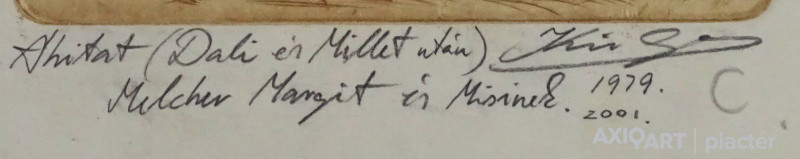 Áhitat (Dali és Millet után)
Melcher Margit és Misinek. 1979.
2001.
C
AXIOART | piacter